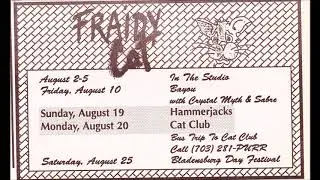 FRAIDY
Cat
August 2-5 In The Studio
Friday, August 10 Bayou
with Crystal Myth & Sabre
Sunday, August 19 Hammerjacks
Monday, August 20 Cat Club
Bus Trip To Cat Club
Call (703) 281-PURR
Saturday, August 25 Bladensburg Day Festival